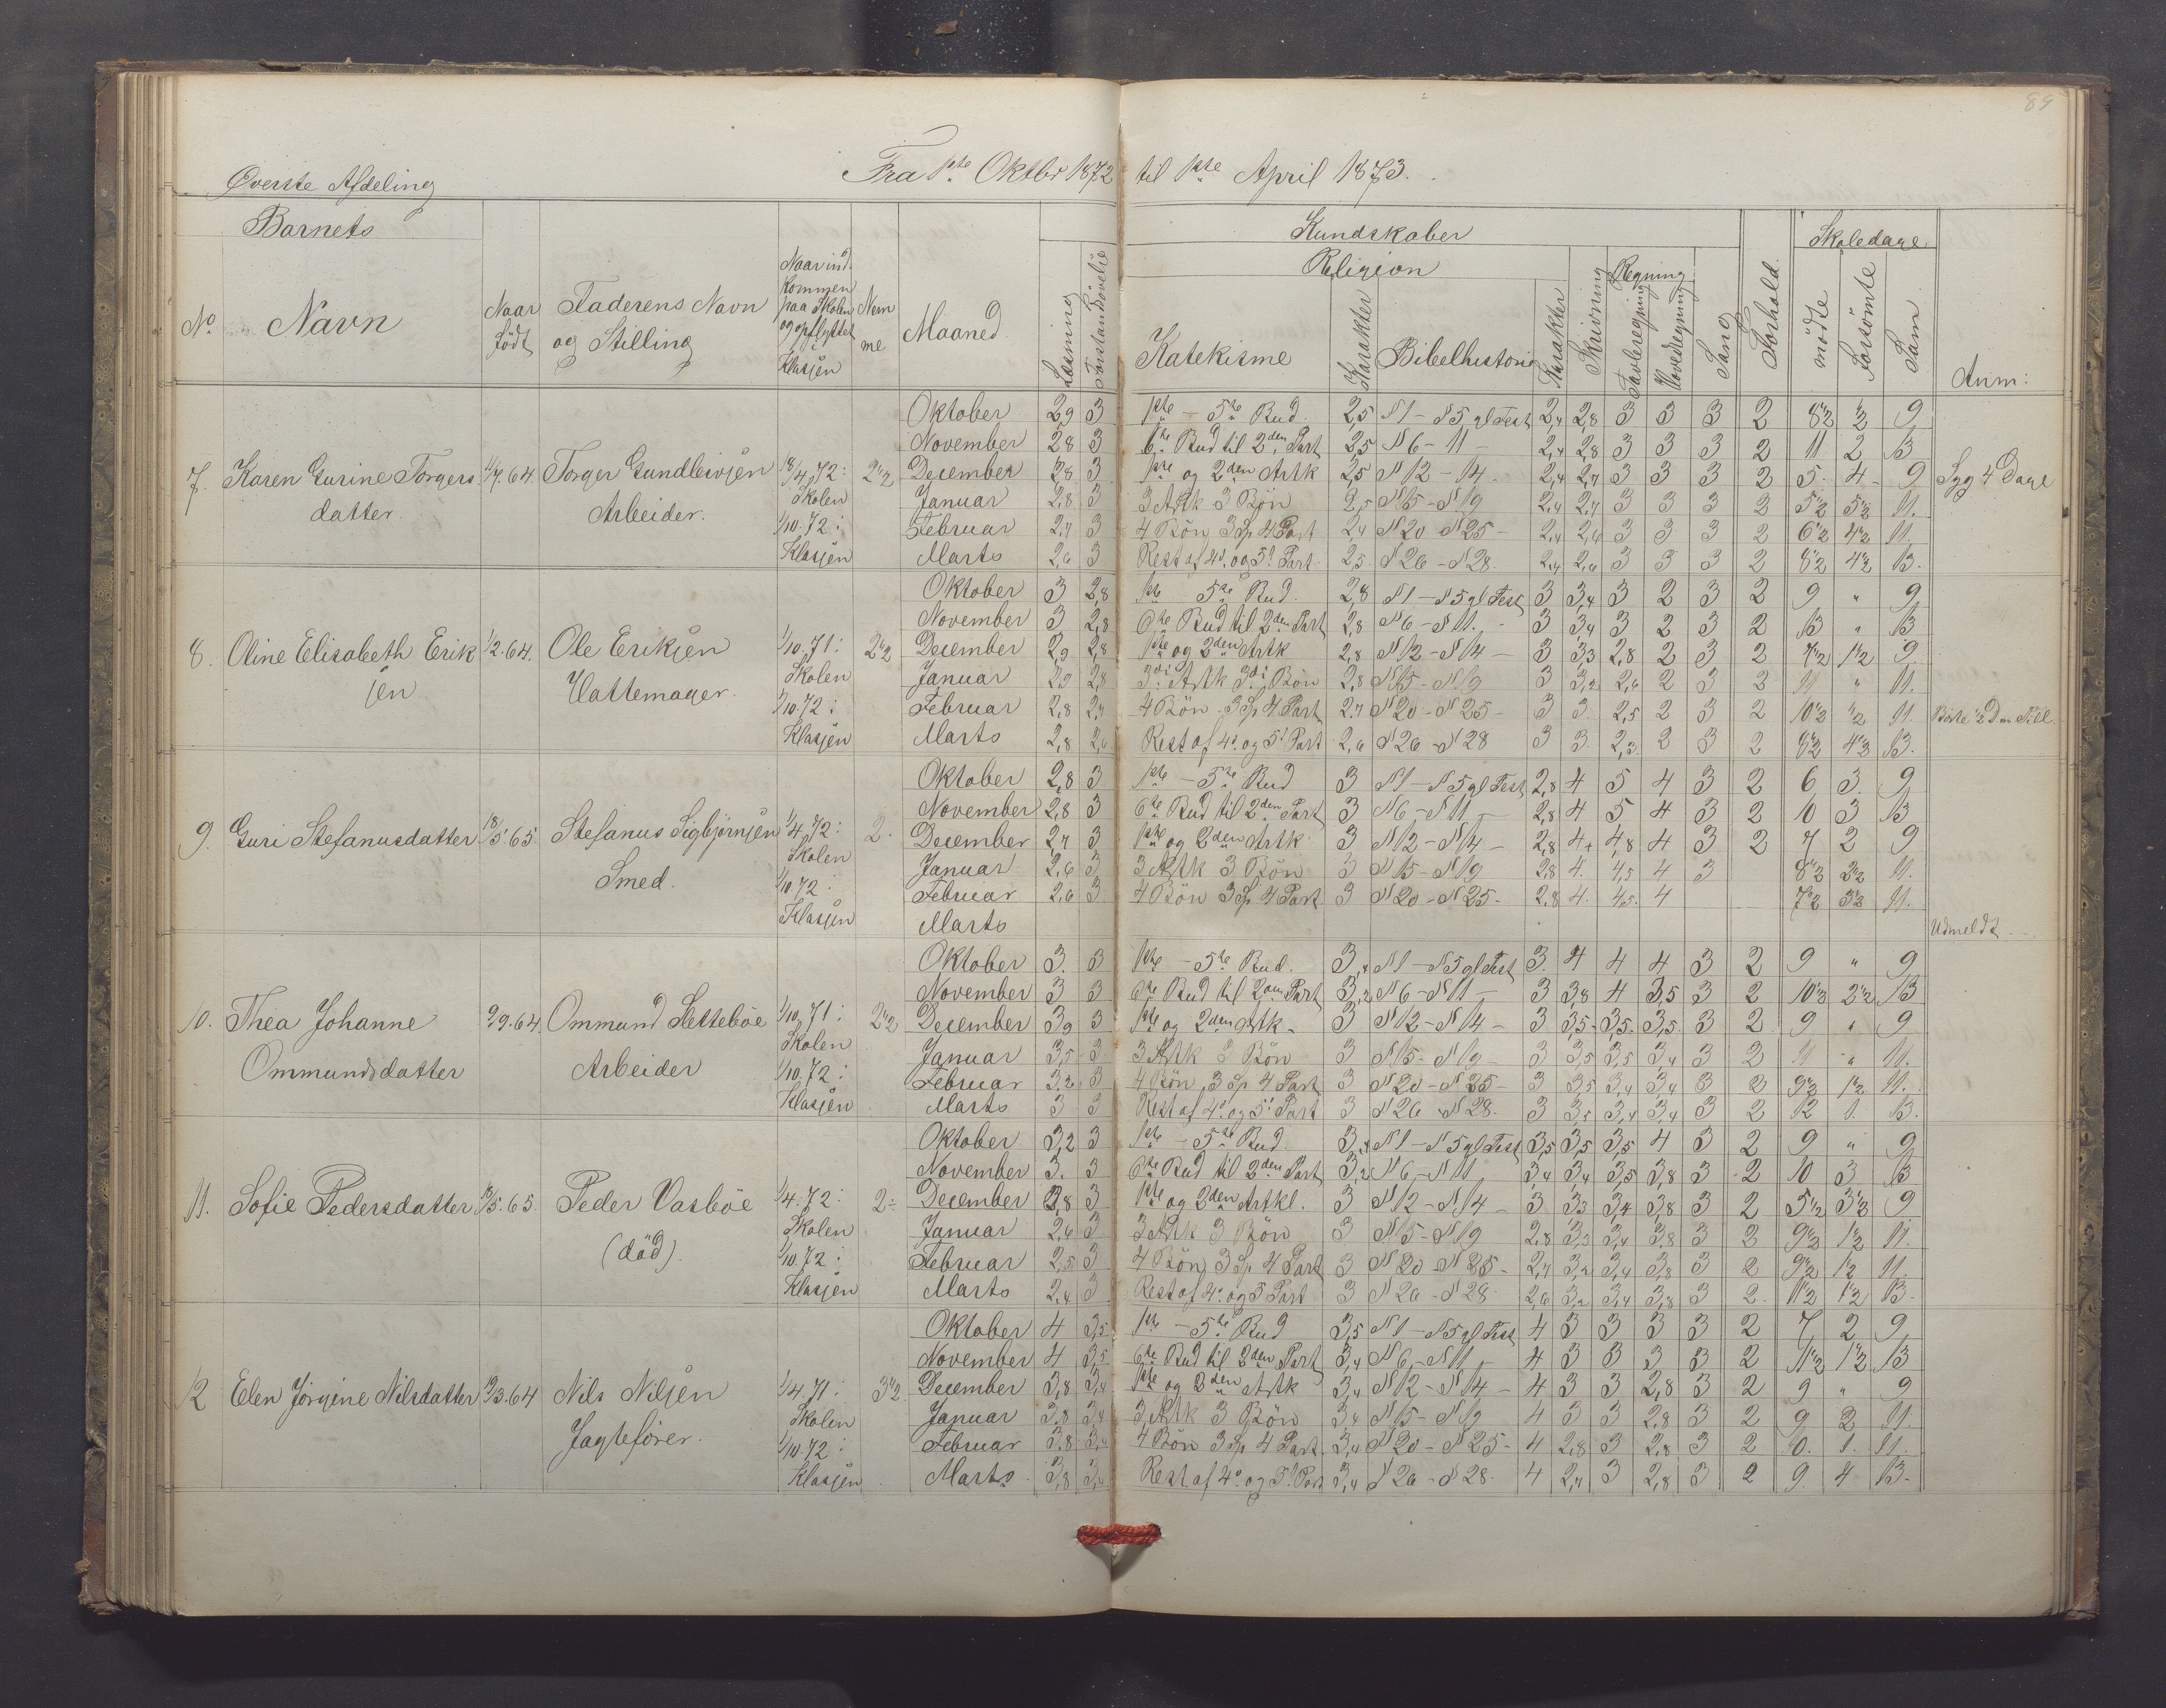 89
Fra 1ste Oktbr 1872 til 1ste April 1873.
Øverste Afdeling
Barnets
Kundskaber
Skoledage
Religion
Regning
No
Navn
Naar født
Faderens Navn og Stilling
Naar ind kommen paa Skolen og opflyttet i Klasjen
Nemme
Maaned
Læsning
Forstandsøvelse
Katekisme
Karakter
Bibelhistorie
Karakter
Skrivning
Tavleregning
Hovedregning
Sang
Forhold
mødte
forsömte
Sum
Anm:
Oktober 2,9 3 1ste - 5te Bud. 2,5 N1 - N5 gl Test 2,4 2,8 3 3 3 2 8 1/2 1/2 9
November 2,8 3 6te Bud til 2den Part 2,5 N6 - 11 - 2,4 2,8 3 3 3 2 11 2 13
7. Karen Gurine Torgers 1/7.64. Torger Gundleivsen 18/4.72: 2 1/2 December 2,8 3 1ste og 2den Artk 2,5 N12 - 14. 2,4 2,7 3 3 3 2 5. 4 9 Syg 4 Dage
datter. Arbeider. Skolen Januar 2,8 3 3 Artk 3 Bön 2,5 N15 - N19 2,4 2,7 3 3 3 2 5 1/2 5 1/2 11.
1/10.72: Februar 2,7 3 4 Bön 3 Sp 4 Part 2,4 N20 - N25 - 2,4 2,6 3 3 3 2 6 1/2 4 1/2 11.
Klasjen Marts 2,6 3 Rest af 4de og 5te Part 2,5 N26 - N28. 2,4 2,6 3 3 3 2 8 1/2 4 1/2 13.
Oktober 3 2,8 1ste 5te Bud. 2,8 N1 - N5 gl Test 3 3,4 3 2 3 2 9 " 9
November 3 2,8 6te Bud til 2den Part 2,8 N6 - N11. - 3 3,4 3 2 3 2 13 " 13
8. Oline Elisabeth Erik 1/2.64. Ole Eriksen 1/10.71: 2 1/2 December 2,9 2,8 1ste og 2den Artk 2,8 N12 - N14 - 3 3,3 2,8 2 3 2 7 1/2 1 1/2 9
sen Hattemager. Skolen Januar 2,9 2,8 3die Artk 3die Bön 2,8 N15 - N19 3 3,2 2,6 2 3 2 11 " 11.
1/10.72: Februar 2,8 2,7 4 Bön 3 Sp 4 Part 2,7 N20 - N25 - 3 3 2,5 2 3 2 10 1/2 1/2 11
Klasjen Marts 2,8 2,6 Rest af 4de og 5te Part 2,6 N26 - N28 3 3. 2,3. 2 3 2 8 1/2 4 1/2 13.
Oktober 2,8 3 1ste - 5te Bud 3 N1 - N5 gl Test 2,8 4 5 4 3 2 6 3. 9
November 2,8 3 6te Bud til 2den Part 3 N6 - N11 - 2,8 4 5 4 3 2 10 3 13
9. Guri Stefanusdatter 18/5 65. Stefanus Sigbjørnsen 1/4.72: 2. December 2,7 3 1ste og 2den Artk 3 N12 - N14 - 2,8 4+ 4,8 4 3 2 7 2 9
Smed. Skolen Januar 2,6 3 3 Artk 3 Bön 3 N15 - N19 2,8 4. 4,5 4 3 8 1/2 2 1/2 11.
1/10.72: Februar 2,6 3 4 Bön 3 Sp 4 Part 3 N20 - N25 - 2,8 4. 4,5. 4 7 1/2 3 1/2 11.
Klasjen Marts Udmeldt
Oktober 3. 3 1ste - 5te Bud. 3,4 N1 - N5 gl Test 3. 4 4 4 3 2 9 " 9
November 3 3 6te Bud til 2den Part 3,2 N6 - N11 - 3 3,8 4 3,5 3 2 10 1/2 2 1/2 13
10. Thea Johanne 9/9.64. Ommund Slettebøe 1/10.71: 2 1/2 December 3,9 3 1ste og 2den Artk - 3 N12 - N14 - 3 3,5 3,5. 3,5. 3 2 9 " 9
Ommundsdatter Arbeider Skolen Januar 3,5 3 3 Artk 3 Bön 3 N15 - N19 - 3 3,5 3,5 3,4 3 2 11 " 11.
1/10.72: Februar 3,2 3 4 Bön 3 Sp 4 Part 3 N20 - N25 - 3 3,5 3,4 3,4 3 2 9 1/2 1 1/2 11.
Klasjen Marts 3 3 Rest af 4de og 5te Part 3 N26 N28. 3 3,5 3,4 3,4 3 2 12 1. 13.
Oktober 3,2 3 1ste - 5te Bud 3,4 N1 - N5 gl Test 3,5 3,5 3,5 4 3 2 9 " 9
November 3. 3 6te Bud til 2den Part 3,2 N6 - N11 3,4 3,4 3,5 3,8 3 2 10 3 13
11. Sofie Pedersdatter 18/5.65. Peder Vasbøe 1/4.72: 2 December 2,8 3 1ste og 2den Artkl. 3 N12 - N14 - 3 3,3 3,4 3,8 3 2 5 1/2 3 1/2 9
(död). Skolen Januar 2,6 3 3 Artk 3 Bön 3 N15 - N19 2,8 3,3 3,4 3,8 3 2 9 1/2 1 1/2 11.
1/10.72: Februar 2,5 3 4 Bön 3 Sp 4 Part 3 N20 N25 - 2,7 3,2 3,4 3,8 3 2 9 1/2 1 1/2 11.
Klasjen Marts 2,4 3 Rest af 4de og 5 Part 3 N26 - N28 2,6 3,2 3,4 3,8 3 2. 11 1/2 1 1/2 13.
Oktober 4 3,5 1ste - 5te Bud 3,5 N1 - N5 gl Test 4 3 3 3 3 2 7 2 9
November 4 3,5 6te Bud til 2den Part 3,4 N6 - N11 - 4 3 3 3 3 2 11 1/2 1 1/2 13
12 Elen Jörgine Nilsdatter 19/3.64 Nils Nilsen 1/4.71: 3 1/2 December 3,8 3,4 1ste og 2den Artk 3,4 N12 - N14 - 4 3 3 2,8 3 2 9 " 9
Jagtefører. Skolen Januar 3,8 3,4 3 Artk 3 Bön 3,4 N15 - N19 4 3 3 2,8 3 2 9 2 11.
1/10.72: Februar 3,8 3,4 4 Bön 3 Sp 4 Part 3,4 N20 - N25 - 4 2,8 3 2,8 3 2 10. 1. 11.
Klasjen Marts 3,8 3,4 Rest af 4de og 5te Part 3,4 N26 - N28. 4 2,7 3 2,8 3 2 9. 4 13.